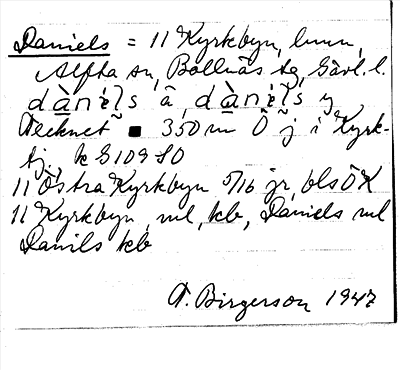 Daniels = 11 Kyrkbyn, hmn,
Alfta sn, Bollnäs tg, Gävl. l.
dànièls ä, dànièls y
Tecknet ■ 350 m Ö j i Kyrk-
tj. k G109 SO
11 Östra Kyrkbyn 5/16 jr, bls ÖK
11 Kyrkbyn, ml, kb, Daniels ml
Danils kb
A. Birgerson 1947